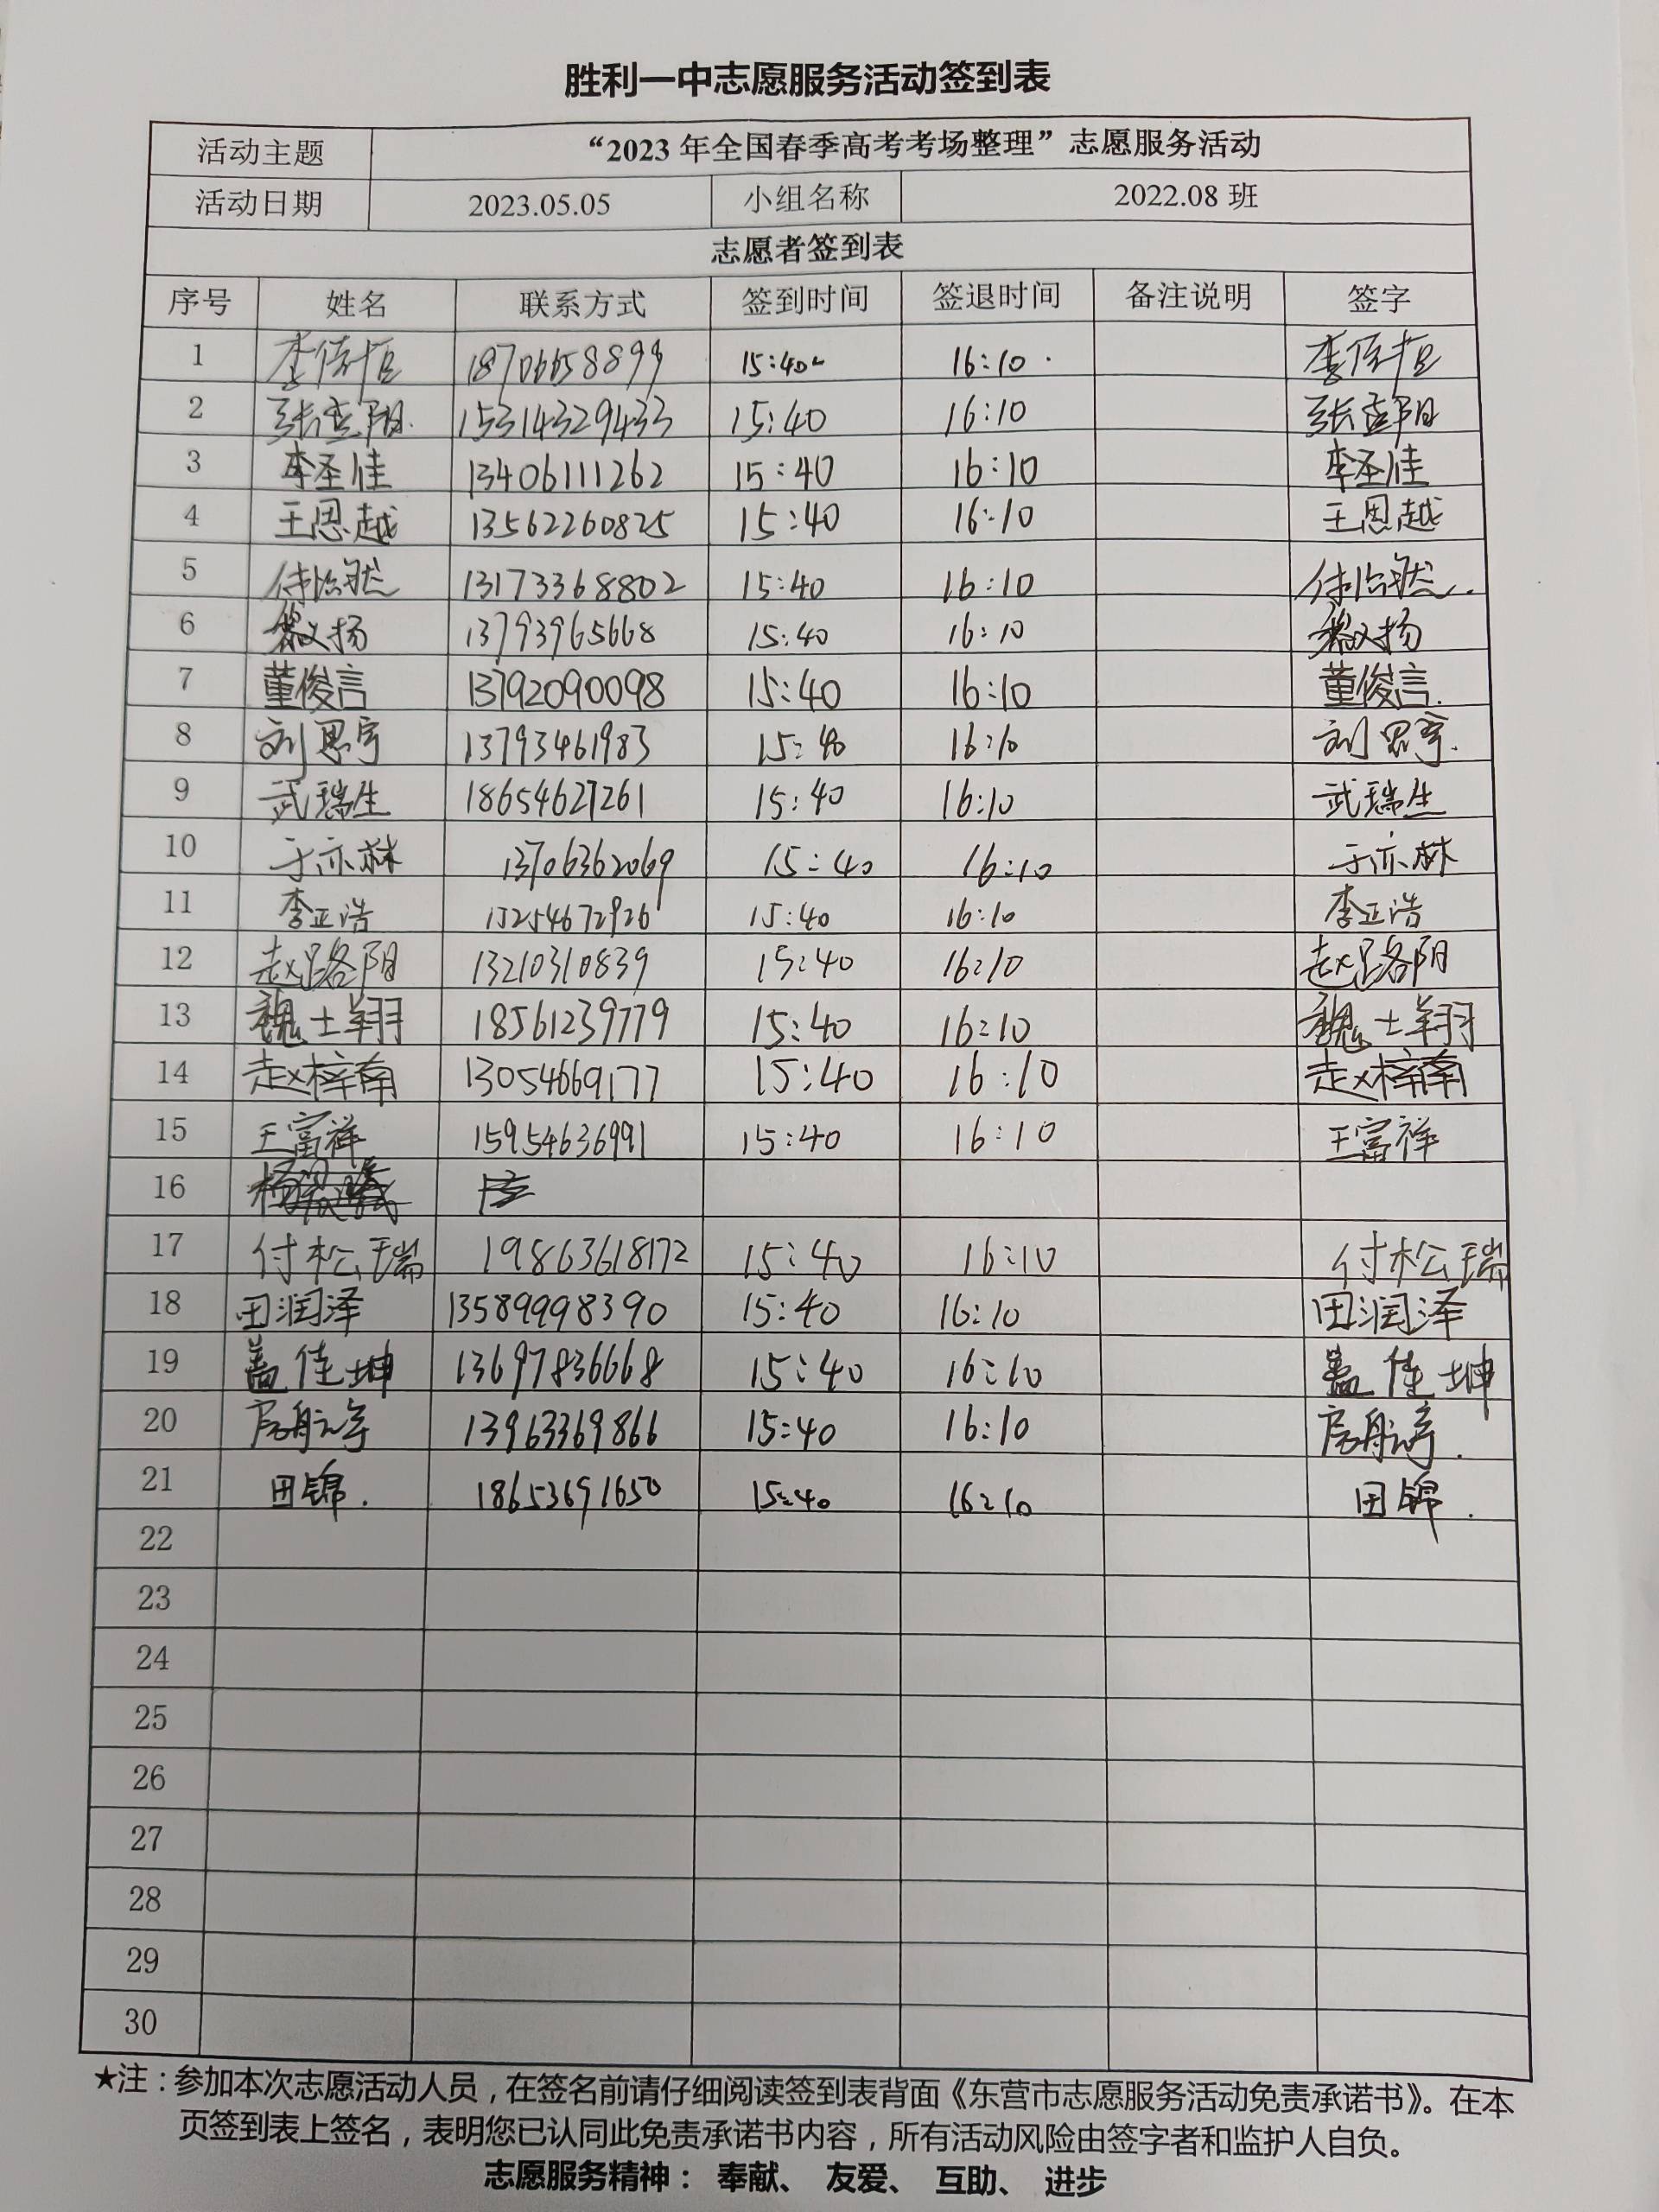 胜利一中志愿服务活动签到表
活动主题 “2023 年全国春季高考考场整理”志愿服务活动
活动日期 2023.05.05 小组名称 2022.08 班
志愿者签到表
序号 姓名 联系方式 签到时间 签退时间 备注说明 签字
1 18706658899 15:40 16:10
2 15314329433 15:40 16:10
3 李圣佳 13406111262 15:40 16:10 李圣佳
4 王思越 13562260825 15:40 16:10 王思越
5 13173368802 15:40 16:10
6 13793965668 15:40 16:10
7 董俊言 13792090098 15:40 16:10 董俊言
8 刘思宇 13793461983 15:40 16:10 刘思宇
9 武瑞生 18654627261 15:40 16:10 武瑞生
10 于亦林 13706362069 15:40 16:10 于亦林
11 李正浩 15254672926 15:40 16:10 李正浩
12 赵路阳 13210310839 15:40 16:10 赵路阳
13 魏士翔 18561239779 15:40 16:10 魏士翔
14 赵梓南 13054669177 15:40 16:10 赵梓南
15 王富祥 15954636991 15:40 16:10 王富祥
16
17 付松瑞 19863618172 15:40 16:10 付松瑞
18 田润泽 13589998390 15:40 16:10 田润泽
19 盖佳坤 13697836668 15:40 16:10 盖佳坤
20 房航宇 13963369866 15:40 16:10 房航宇.
21 田锦. 18653691650 15:40 16:10 田锦.
22
23
24
25
26
27
28
29
30
★注：参加本次志愿活动人员，在签名前请仔细阅读签到表背面《东营市志愿服务活动免责承诺书》。在本
页签到表上签名，表明您已认同此免责承诺书内容，所有活动风险由签字者和监护人自负。
志愿服务精神： 奉献、 友爱、 互助、 进步